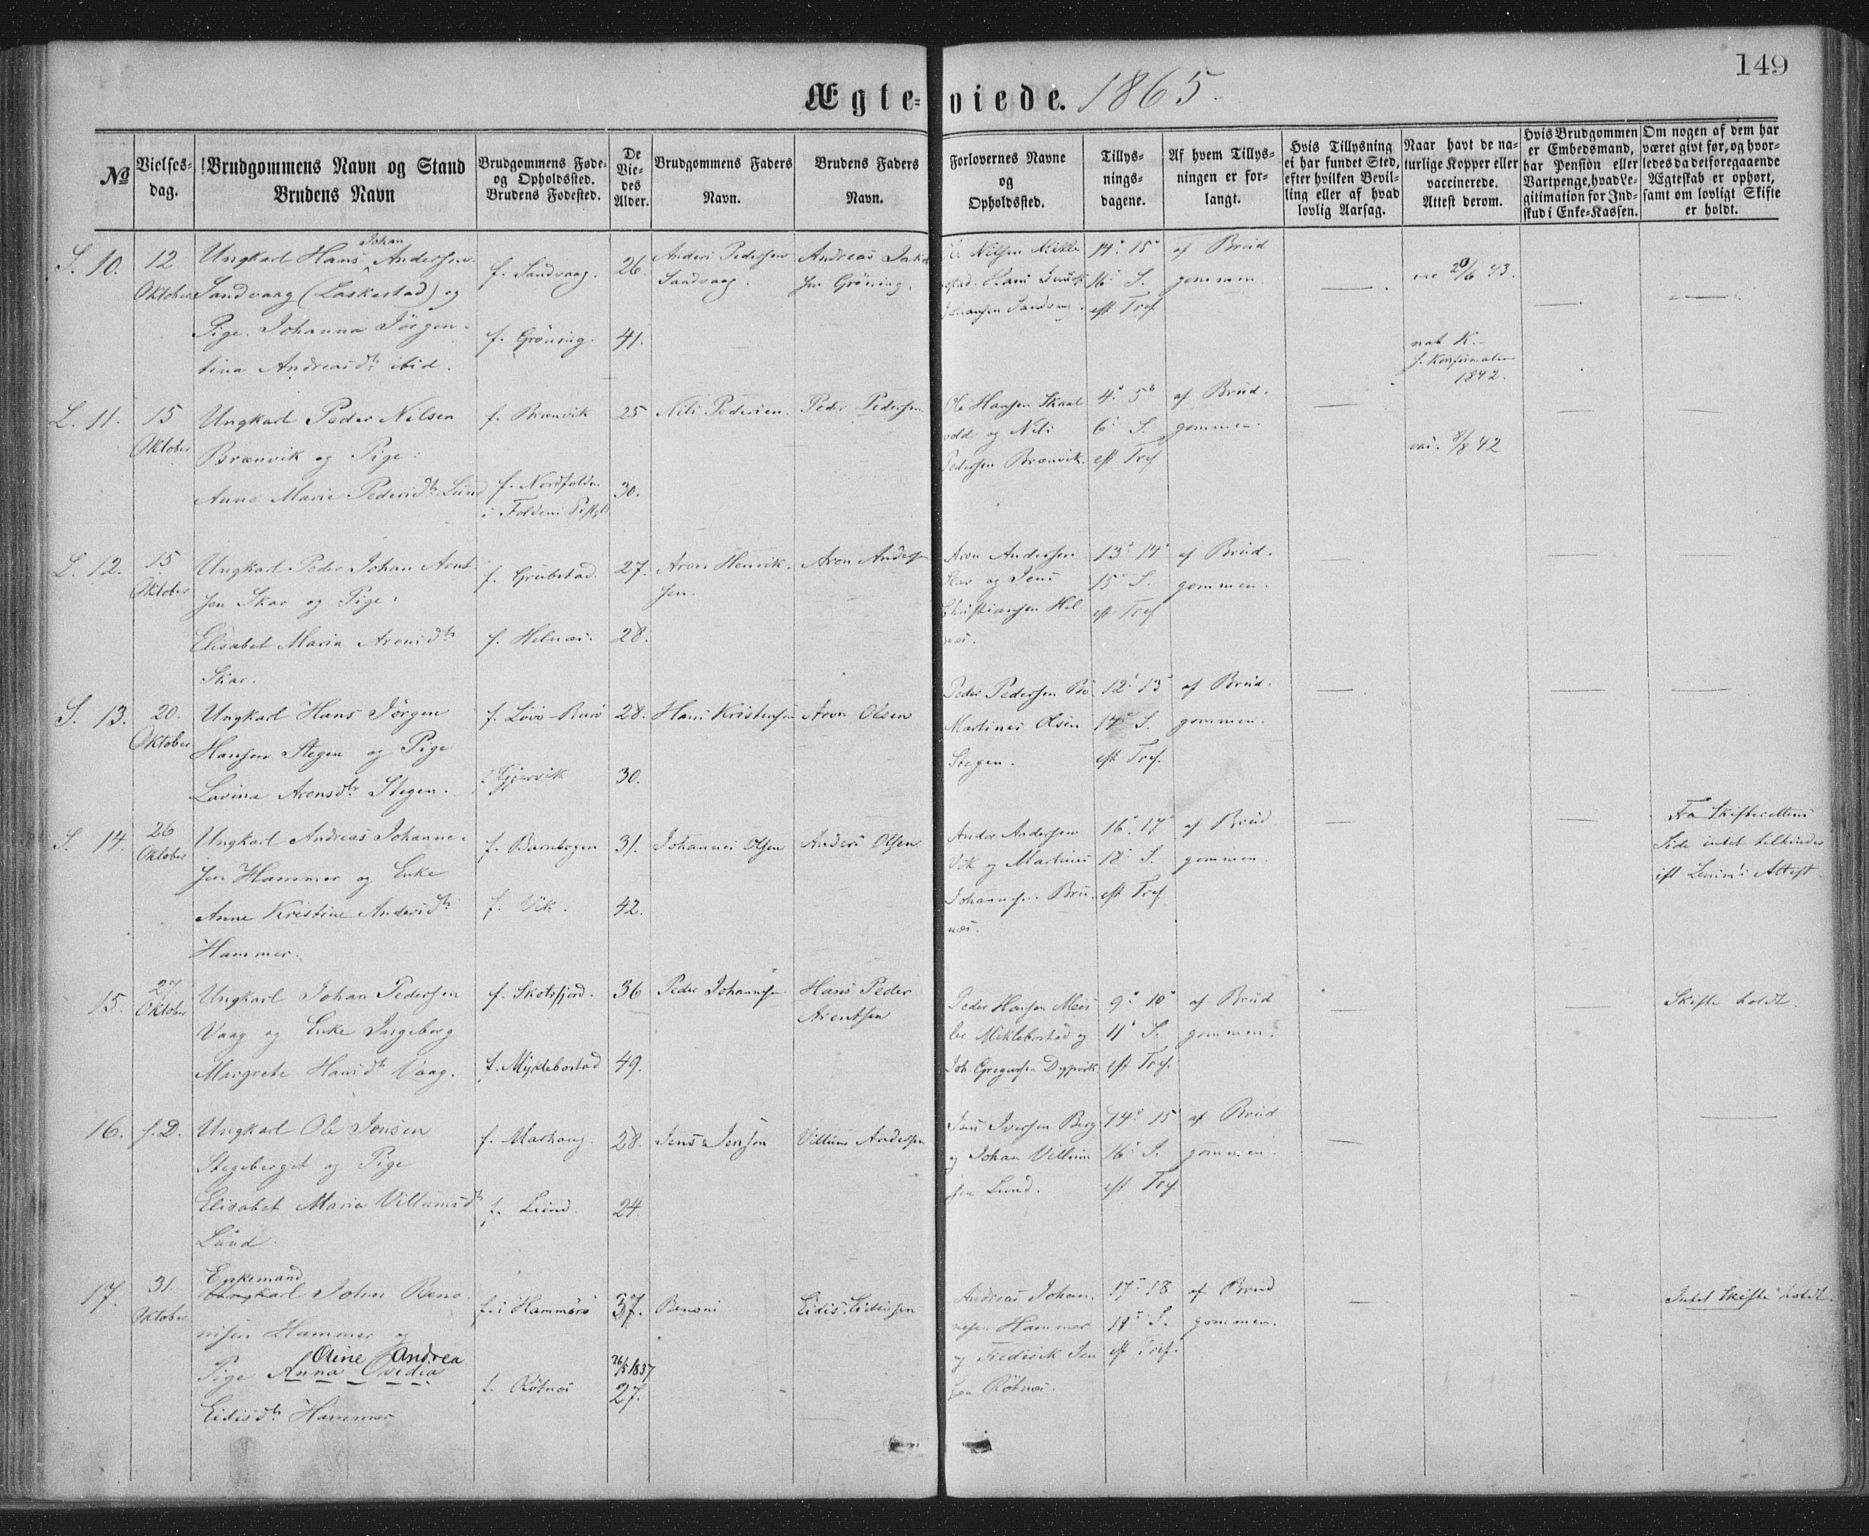 149
Ægte-viede. 1865.
No
Vielses-dag.
Brudgommens Navn og Stand
Brudens Navn
Brudgommens Føde- og Opholdssted.
Brudens Fødested.
De Vie-des Alder.
Brudgommens Faders Navn.
Brudens Faders Navn.
Forlovernes Navne og Opholdsted.
Tillys-nings-dagene.
Af hvem Tillys-ningen er for-langt.
Hvis Tillysning ei har fundet Sted, efter hvilken Bevil-ling eller af hvad lovlig Aarsag.
Naar havt de na-turlige Kopper eller vaccinerede. Attest derom.
Hvis Brudgommen er Embedsmand, har Pension eller Vartpenge, hvad Le-gitimation for Ind-skud i Enke-Kassen.
Om nogen af dem har været givt før, og hvor-ledes da det foregaaende Ægteskab er ophørt, samt om lovligt Skifte er holdt.
S. 10. 12 Oktober
Ungkarl Hans Johan Andersen
Sandvaag (Laskestad) og
Pige Johanna Jörgen-
tina Andreasdtr ibid.
f. Sandvaag. 26.
f. Gröning. 41.
Anders Pedersen
Sandvaag.
Andreas Jakob
sen Gröning.
Ole Nilsen Mikle
bostad
14' 15'
16' S.
eft Tref.
af Brud
gommen.
20/6 43.
nat K.
f. Konfirmation
1842.
L. 11. 15 Oktober
Ungkarl Peder Nilsen
Brænvik og Pige:
Anne Marie Pedersdtr Lund
f. Brænvik 25
f. Nordfolden
i Foldens Pstgld 30.
Nils Pedersen.
Peder Pedersen
Ole Hansen Skaal
vold og Nils
Pedersen Brænvik.
4' 5'
6' S.
eft Tref
af Brud.
gommen.
vac. 8/8 42
L. 12. 15 Oktober
Ungkarl Peder Johan Arnt
sen Skar og Pige:
Elisabet Maria Aronsdtr
Skar.
f. Grubstad. 27.
f. Helnæs. 28.
Aron Henrik-
sen.
Aron Andersen
Aron Andersen
Skar og Jens
Christiansen Hel
næs.
13' 14'
15' S.
eft Tref
af Brud.
gommen.
S. 13. 20. Oktober
Ungkarl Hans Jörgen
Hansen Stegen og Pige
Lovina Aronsdtr Stegen.
f. Lövö 28.
f. Gjervik 30.
Hans Kristensen
Aron Olsen
Peder Pedersen Bö
Martines Olsen
Stegen.
12' 13'
14' S.
eft Tref.
af Brud.
gommen.
S. 14. 26 Oktober
Ungkarl Andreas Johanne-
sen Hammer og Enke
Anne Kristine Andersdtr
Hammer.
f. Bärnbogen 31.
f. Vik. 42.
Johannes Olsen
Anders Olsen
Anders Andersen
Vik og Martines
Johannesen Bru
næs.
16' 17'
18' S.
eft Tref
af Brud
gommen.
Fra Skifterettens
Side intet tilhinder
ift Lensm's Attest.
15. 27. Oktober
Ungkarl Johan Pedersen
Vaag og Enke Ingeborg
Margrete Hansdtr Vaag.
f. Skotsfjord. 36
f. Myklebostad 49.
Peder Johannsen
Hans Peder
Arentsen
Peder Hansen
Miklebostad og
Joh. Gregersen Dypvik
9' 10'
11' S.
eft Tref.
af Brud
gommen.
Skifte holdt.
16. s. D.
Ungkarl Ole Jensen
Stegeberget og Pige
Elisabet Maria Villumsdtr
Lund
f. Marhaug. 28.
f. Lund. 24.
Jens Jensen
Villum Andersen
Jens Iversen Berg
og Johan Villum
sen Lund.
14' 15'
16' S.
eft Tref.
af Brud
gommen.
17. 31. Oktober
Enkemand
Ungkarl John Beno-
nisen Hammer og
Oline Andrea
Pige Anna Ovedia
Eidisdtr Hammer
f. i Hammerö 37.
f. Rötnes 26/5 1837
27.
Benoni
Eidis Eidissen
Andreas Johan
nesen Hammer
og Frederik Jen
sen Rötnes.
17' 18
19' S.
eft Tref.
af Brud
gommen.
Intet Skifte holdt.